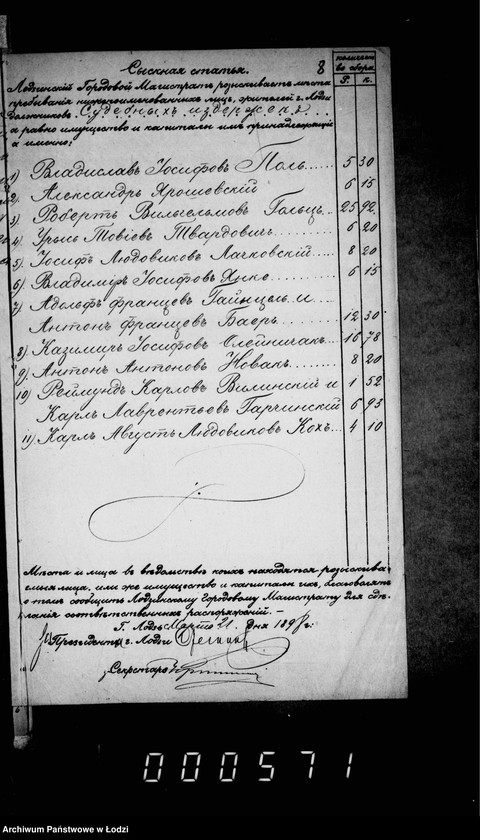 Сыскная статья. 8
количест
во сбора
Р. к.
Лодзинскій Городовой Магистратъ розыскиваетъ мѣста
пребыванія нижепоименованныхъ лицъ, жителей г. Лодзи
должниковъ Судебныхъ издержекъ
а равно имущество и капиталы имъ принадлежащіе
а именно:
1) Владиславъ Іосифовъ Поль..... 5 30
2) Александръ Ярошевскій 6 15
3) Робертъ Вильгельмовъ Гольцъ.. 25 92
4) Урысь Товіевъ Твардовичъ..... 6 20
5) Іосифъ Людовиковъ Лачковскій... 8 20
6) Владиміръ Іосифовъ Янке....... 6 15
7) Адольфъ Францевъ Гайнцель и
Антонъ Францевъ Баеръ........ 12 30
8) Казимиръ Іосифовъ Олейничакъ... 16 78
9) Антонъ Антоновъ Новакъ....... 8 20
10) Реймундъ Карловъ Вилинскій и 1 52
Карлъ Лаврентьевъ Гарчинскій 6 93
11) Карлъ Августъ Людовиковъ Кохъ... 4 10
Мѣста и лица въ вѣдомствѣ коихъ находятся розыскива-
емыя лица, или же имущество и капиталы ихъ, благоволятъ
о томъ сообщить Лодзинскому Городовому Магистрату для сдѣ-
ланія соотвѣтственныхъ распоряженій.
Г. Лодзь Марта 21 дня 189 г.
Президентъ г. Лодзи
Секретарь
000571
Archiwum Państwowe w Łodzi